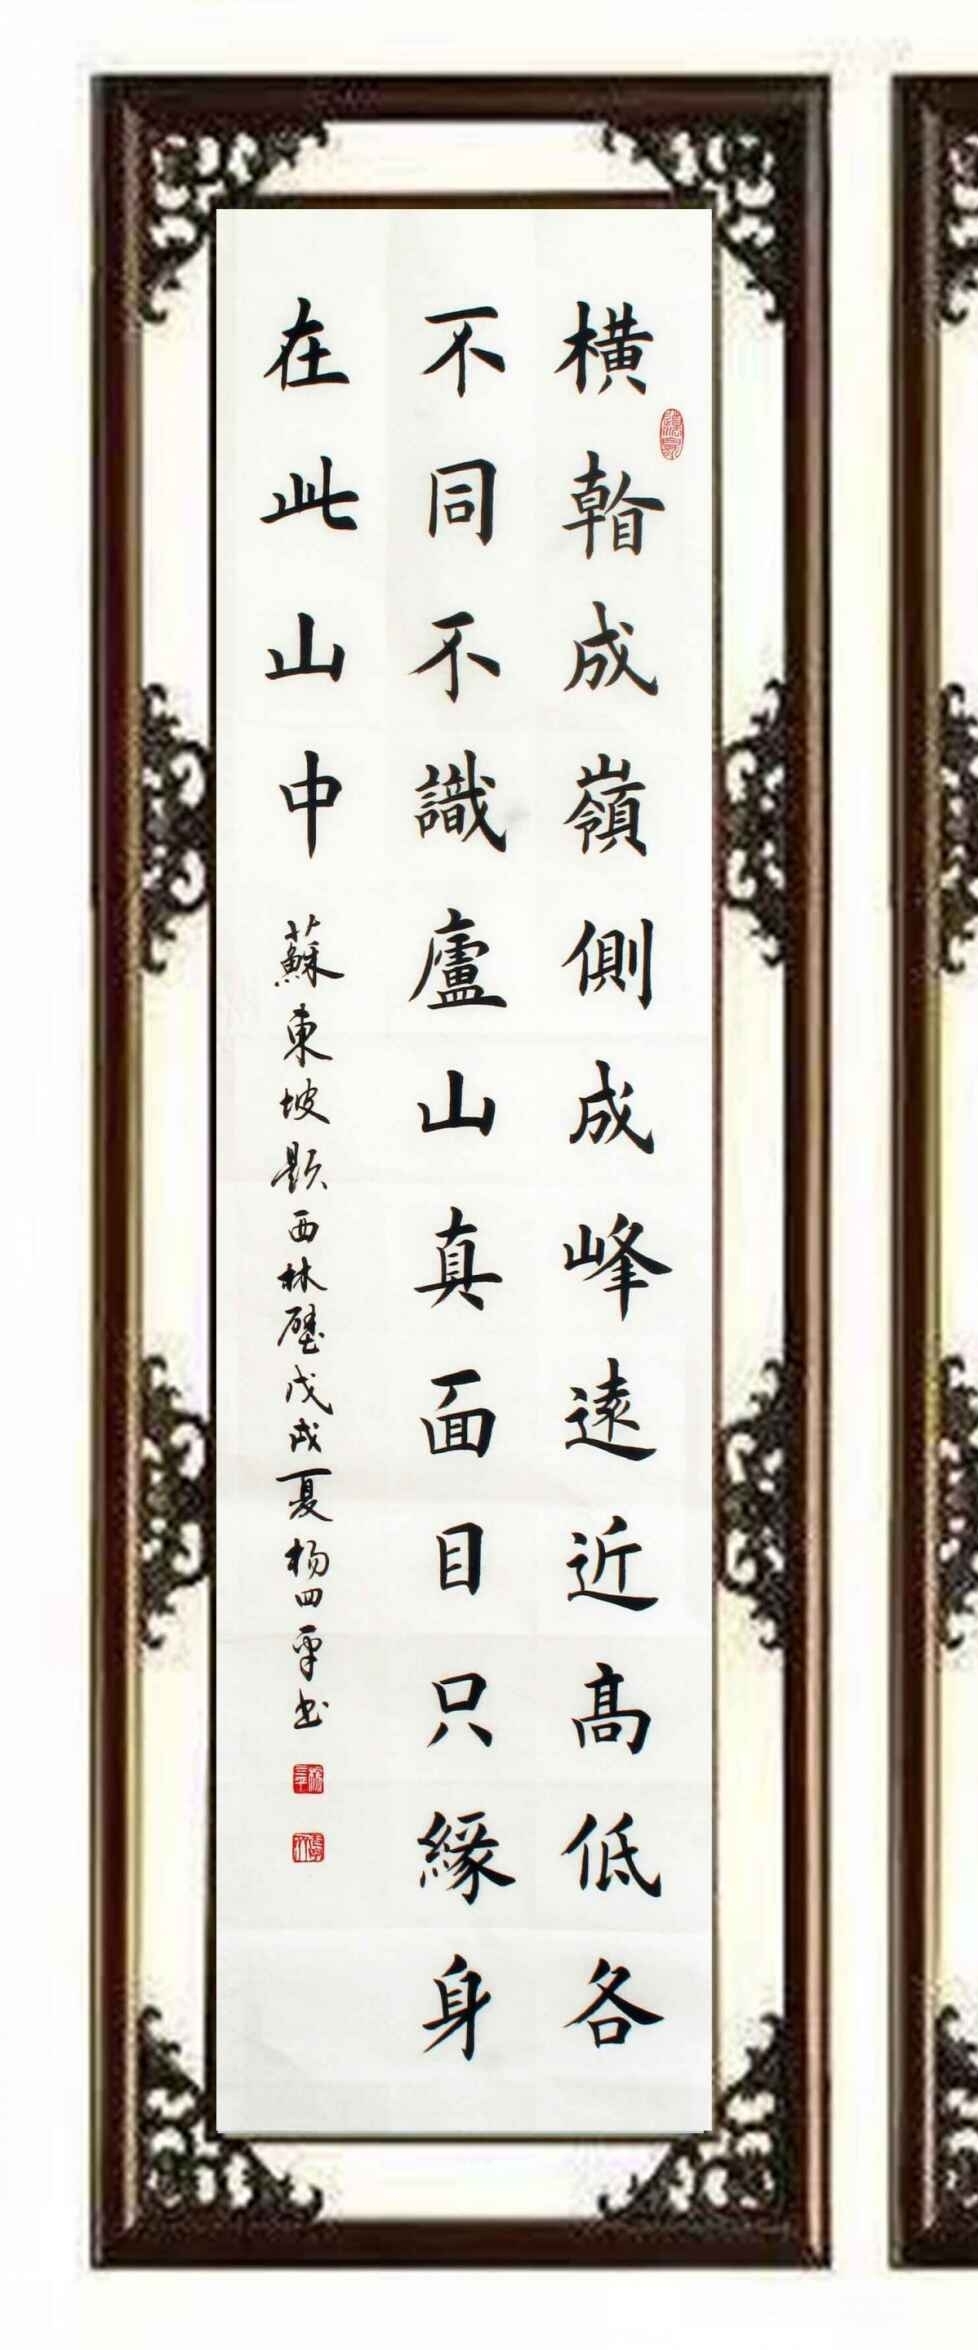 橫看成嶺側成峰遠近髙低各
不同不識廬山真面目只緣身
在此山中 蘇東坡題西林壁戊戌夏楊四平书